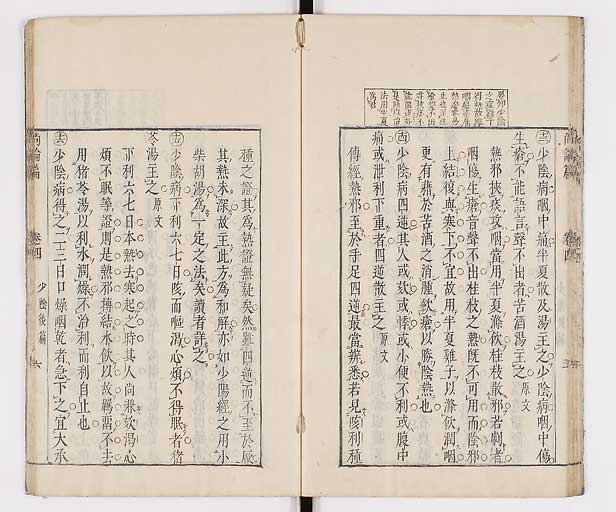 ㊂少陰病咽中痛半夏散及湯主之少陰病咽中傷
生瘡不能語言聲不出者苦酒湯主之原文
熱邪挾痰攻咽當用半夏滌飲桂枝散邪若劇者
咽傷生瘡音聲不出桂枝之熱既不可用而陰邪
上結復與寒下不宜故用半夏雞子以滌飲潤咽
更有藉於苦酒之消腫斂瘡以勝陰熱也
㊃少陰病四逆其人或欬或悸或小便不利或腹中
痛或泄利下重者四逆散主之原文
傳經熱邪至於手足四逆最當辨悉若見欬利種
種之證其爲熱證無疑矣然雖四逆而不至於厥
其熱未深故主此方爲和解亦如少陽經之用小
柴胡湯爲一定之法矣讀者詳之
少陰病下利六七日欬而嘔渴心煩不得眠者猪
苓湯主之原文
下利六七日本熱去寒起之時其人尚兼欬渴心
煩不眠等證則是熱邪摶結水飲以故羈留不去
用猪苓湯以利水潤燥不治利而利自止也
少陰病得之二三日口燥咽乾者急下之宜大承
尚論篇
卷四
少陰後篇